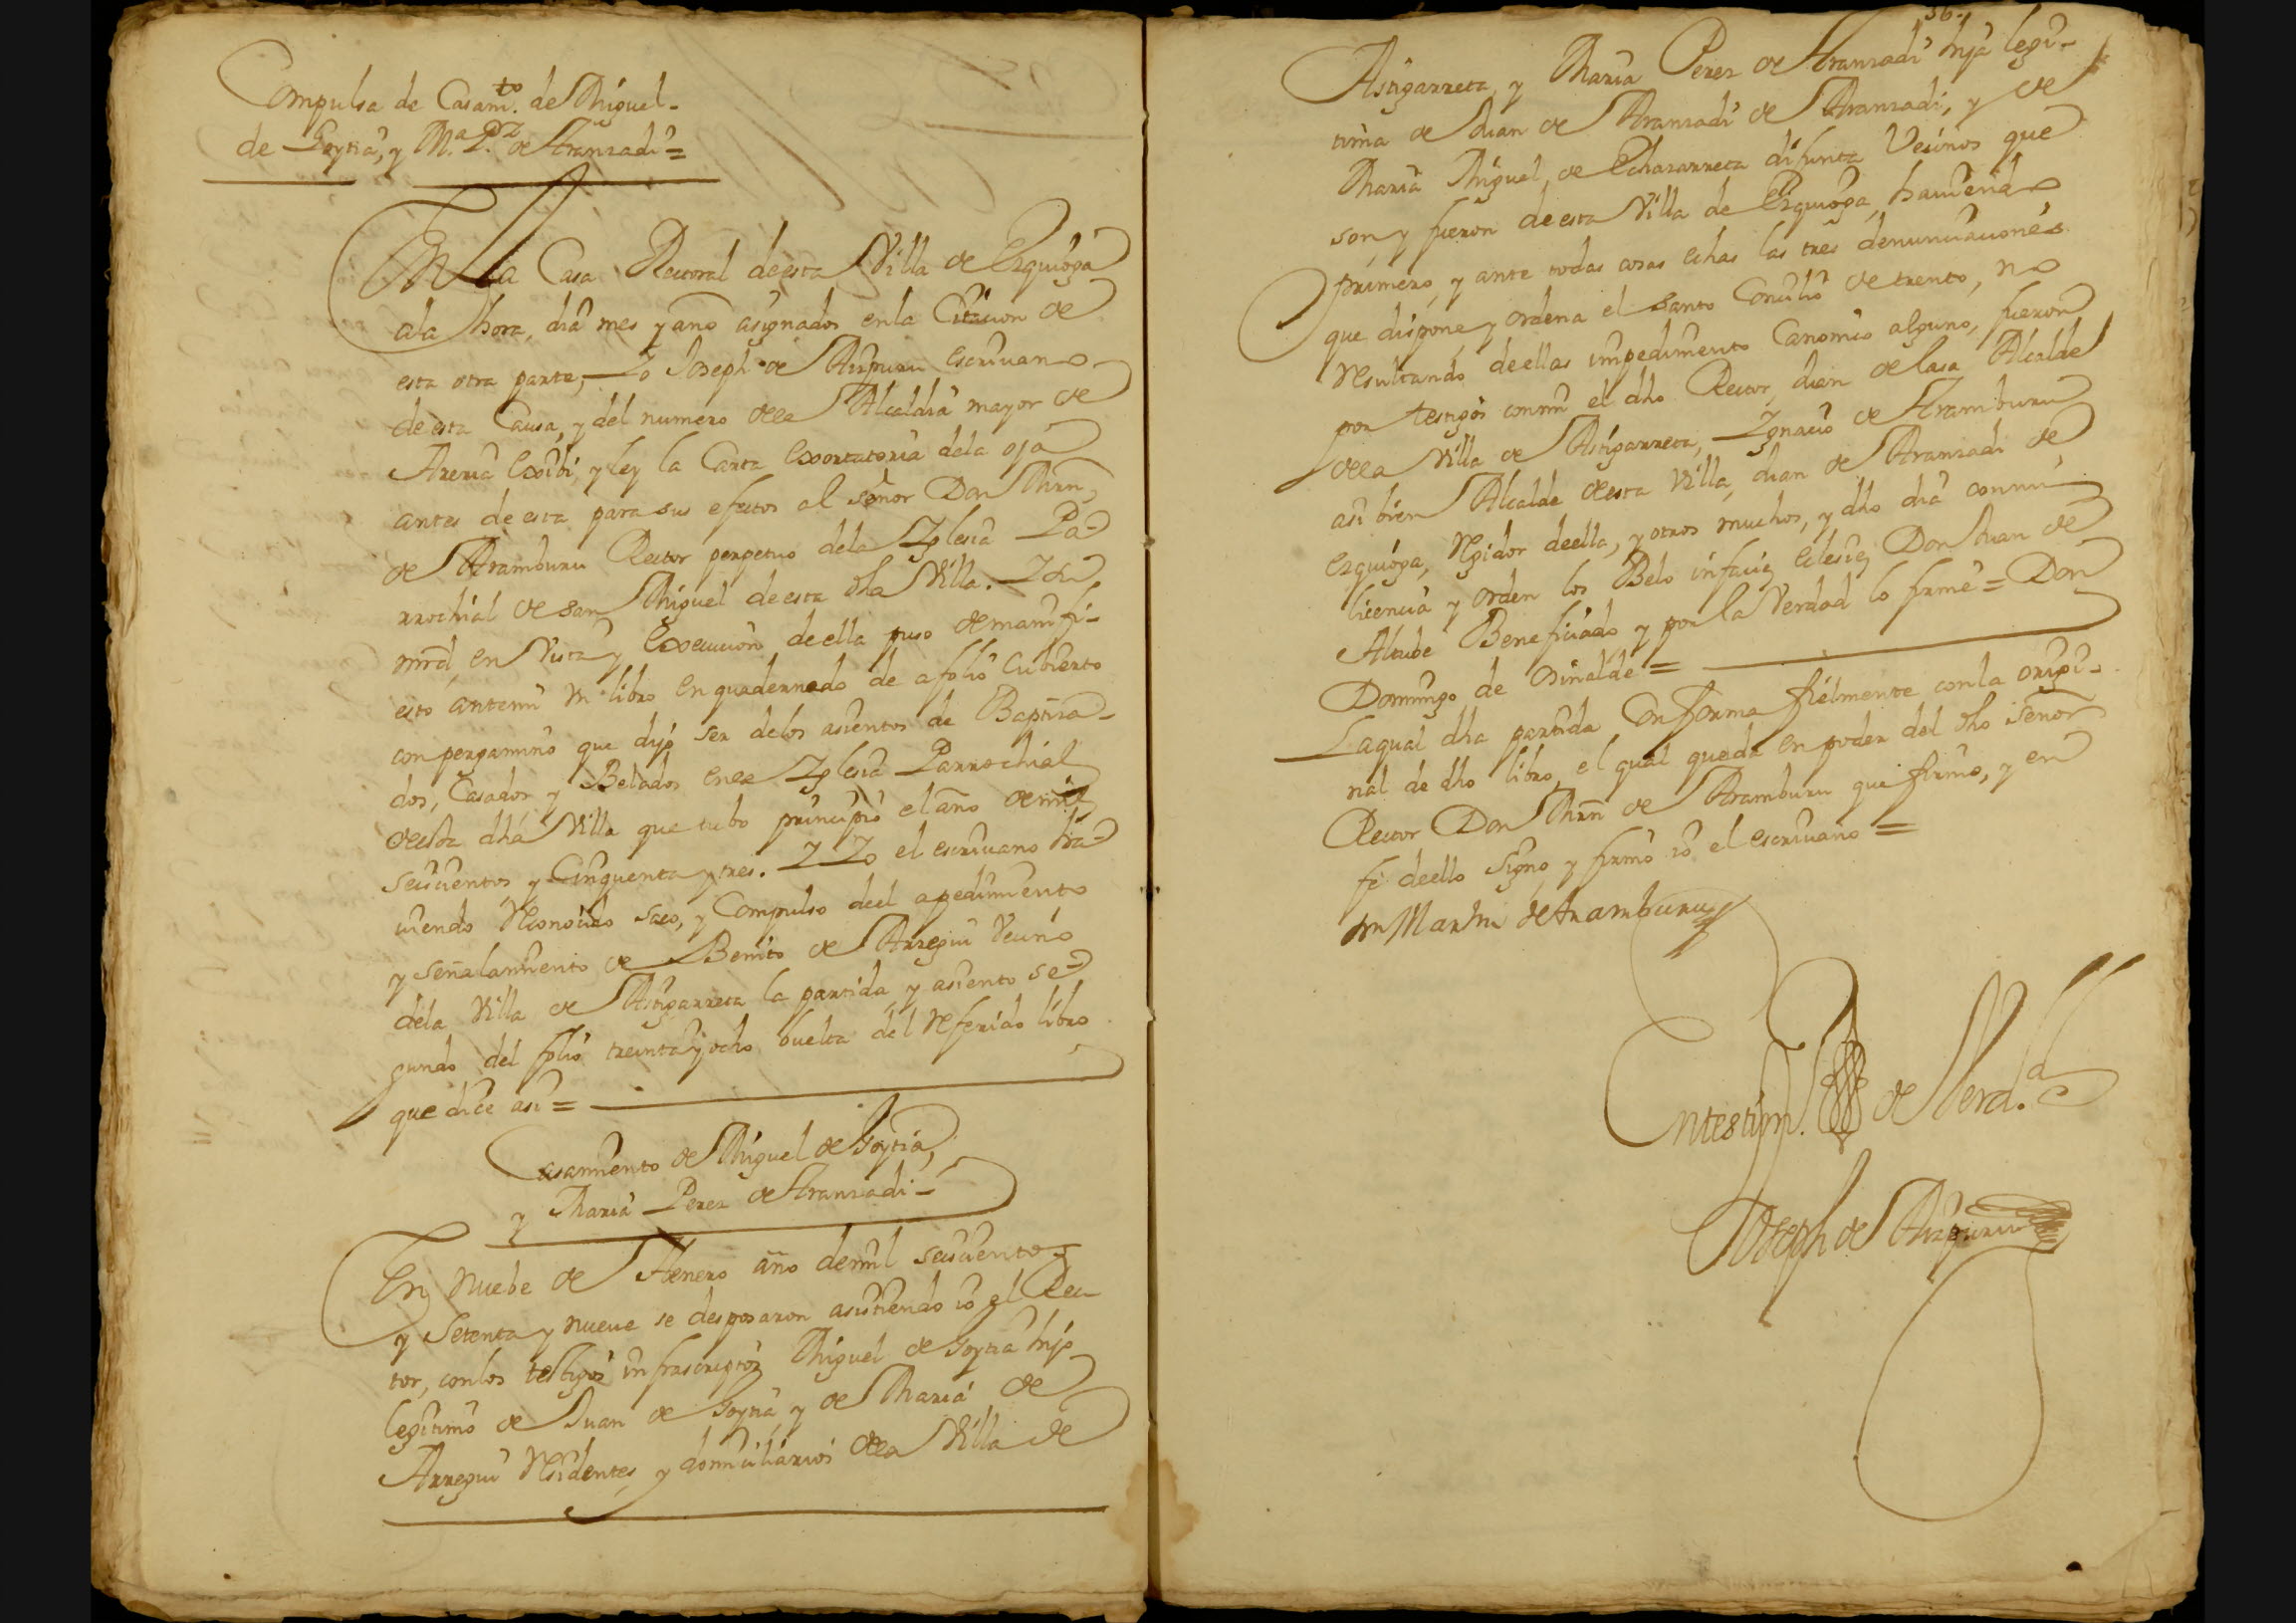 Compulsa de Casam.to de Miguel
de Goytia, y M.a P.z de Aranzadi =
En la Casa Rectoral de esta Villa de Ezquioga
ala hora, dia mes y año asignados enla Citacion de
esta otra parte, Yo Joseph de Aizpuru escrivano
de esta Causa, y del numero dela Alcaldia mayor de
Areria Exsibi, y ley la Carta Exsortatoria dela oja
antes de esta para sus efectos al señor Don Mrn
de Aramburu Rector perpetuo dela Yglesia Pa-
rrochial de san Miguel de esta dha Villa. Y su
mrd, en Vista y Execucion de ella puso de manifi-
esto antemi Un libro enquadernado de a folio Cubierto
con pergamino que dijo ser delos asientos de Baptiza-
dos, Casados y Belados enla Yglesia Parrochial
de esta dha Villa que tubo principio el año de mil
seiscientos y Cinquenta y tres. Y Yo el escrivano ha-
viendo Reconocido saco, y Compulso de el apedimiento
y señalamiento de Benito de Arregui Vecino
dela Villa de Astigarreta la partida, y asiento se-
gundo del folio treinta y ocho buelta del Referido libro
que dice asi =
Casamiento de Miguel de Goytia,
y Maria Perez de Aranzadi -
En nuebe de Henero año de mil seiscientos
y setenta y nueve se desposaron asistiendo io el Rec-
tor, con los testigos infrascriptos Miguel de Goytia hijo
legitimo de Juan de Goytia, y de Maria de
Arregui Residentes, y domiciliarios dela Villa de
36.
Astigarreta, y Maria Perez de Aranzadi hija legi-
tima de Juan de Aranzadi de Aranzadi, y de
Maria Miguel de Echazarreta difunta Vecinos que
son, y fueron de esta Villa de Ezquioga, haviendo
primero, y ante todas cosas echas las tres denunciaciones
que dispone, y ordena el santo Concilio de trento, no
Resultando de ellas impedimento Canonico alguno, fueron
por testigos conmi el dho Rector, Juan de lasa Alcalde
dela Villa de Astigarreta, Ygnacio de Aramburu
asi bien Alcalde de esta Villa, Juan de Aranzadi de
Ezquioga, Regidor de ella, y otros muchos, y dho dia conmi
licencia y orden los Belo infacie eclesie Don Juan de
Altube Beneficiado y por la Verdad lo firme = Don
Domingo de Oinalde =
La qual dha partida Conforma fielmente con la origi-
nal de dho libro, el qual queda en poder del dho señor
Rector Don Mrn de Aramburu que firmo, y en
fe de ello signo, y firmo io el escrivano =
Dn Martin de Aramburu
En testim.o de Verd.d
Joseph de Aizpuru